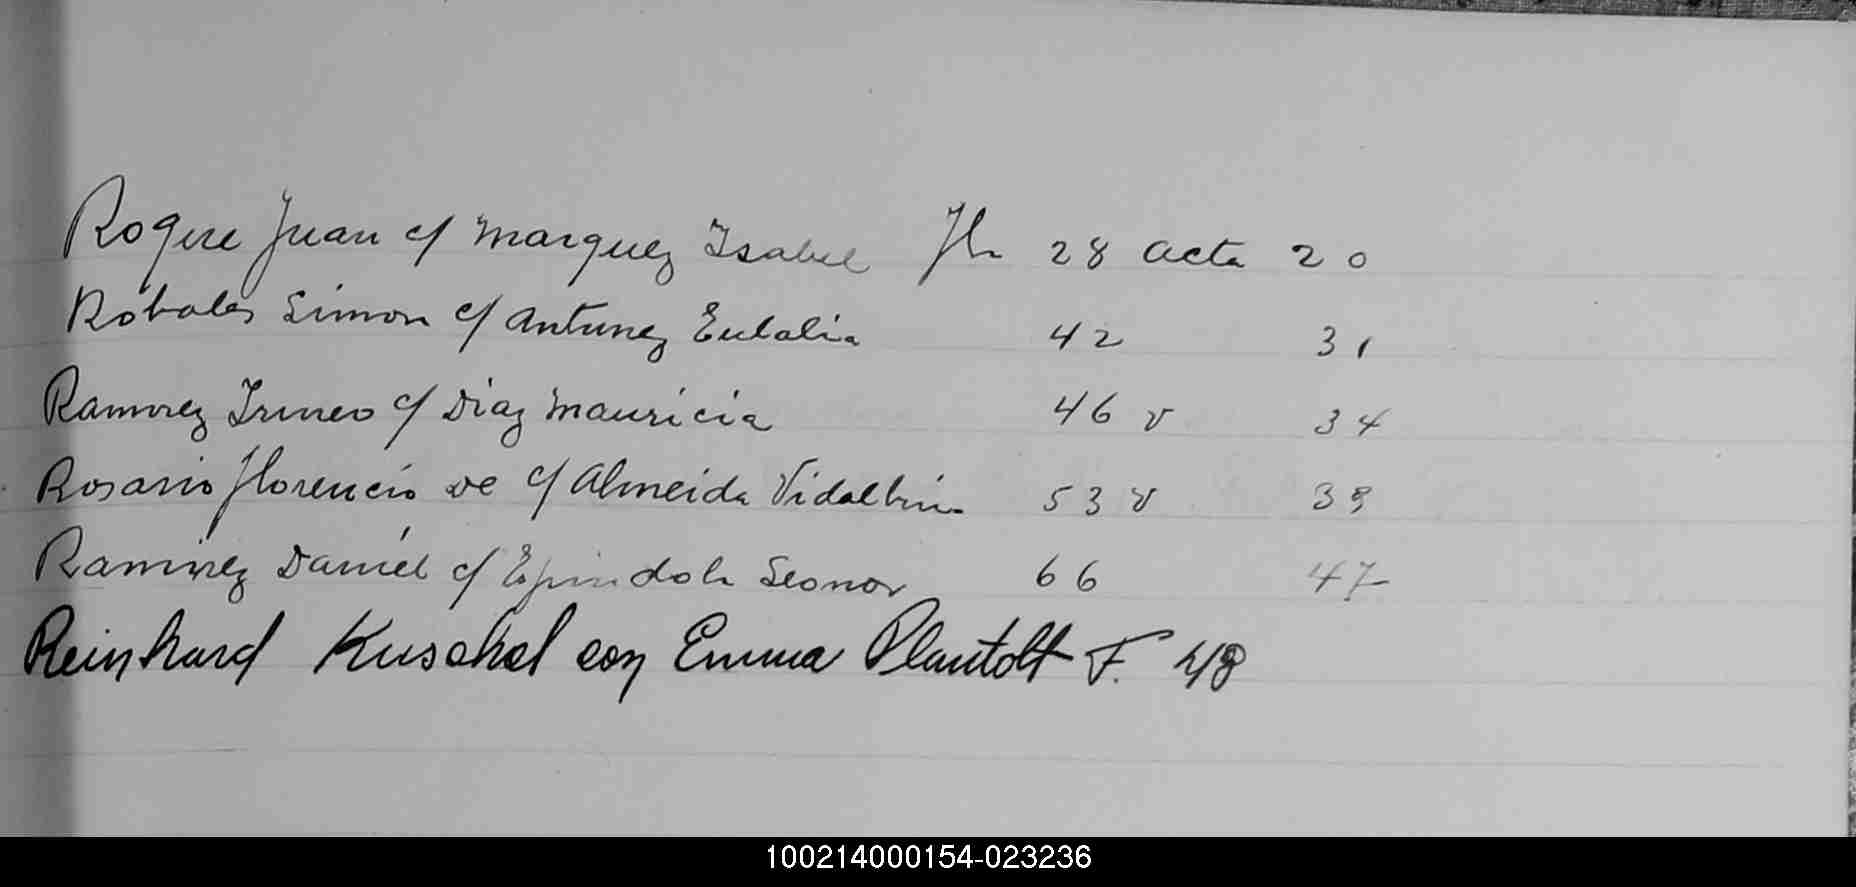 Rogere Juan c/ Marquez Isabel Fl 28 acta 20
Robales Simon c/ Antunez Eulalia 42 31
Ramirez Irineo c/ Diaz Mauricia 46 v 34
Rosario Florencio de c/ Almeida Vidalbina 53 v 39
Ramirez Daniel c/ Espindola Leonor 66 47
Reinhard Kuschel con Emma Plautolt F. 48
100214000154-023236